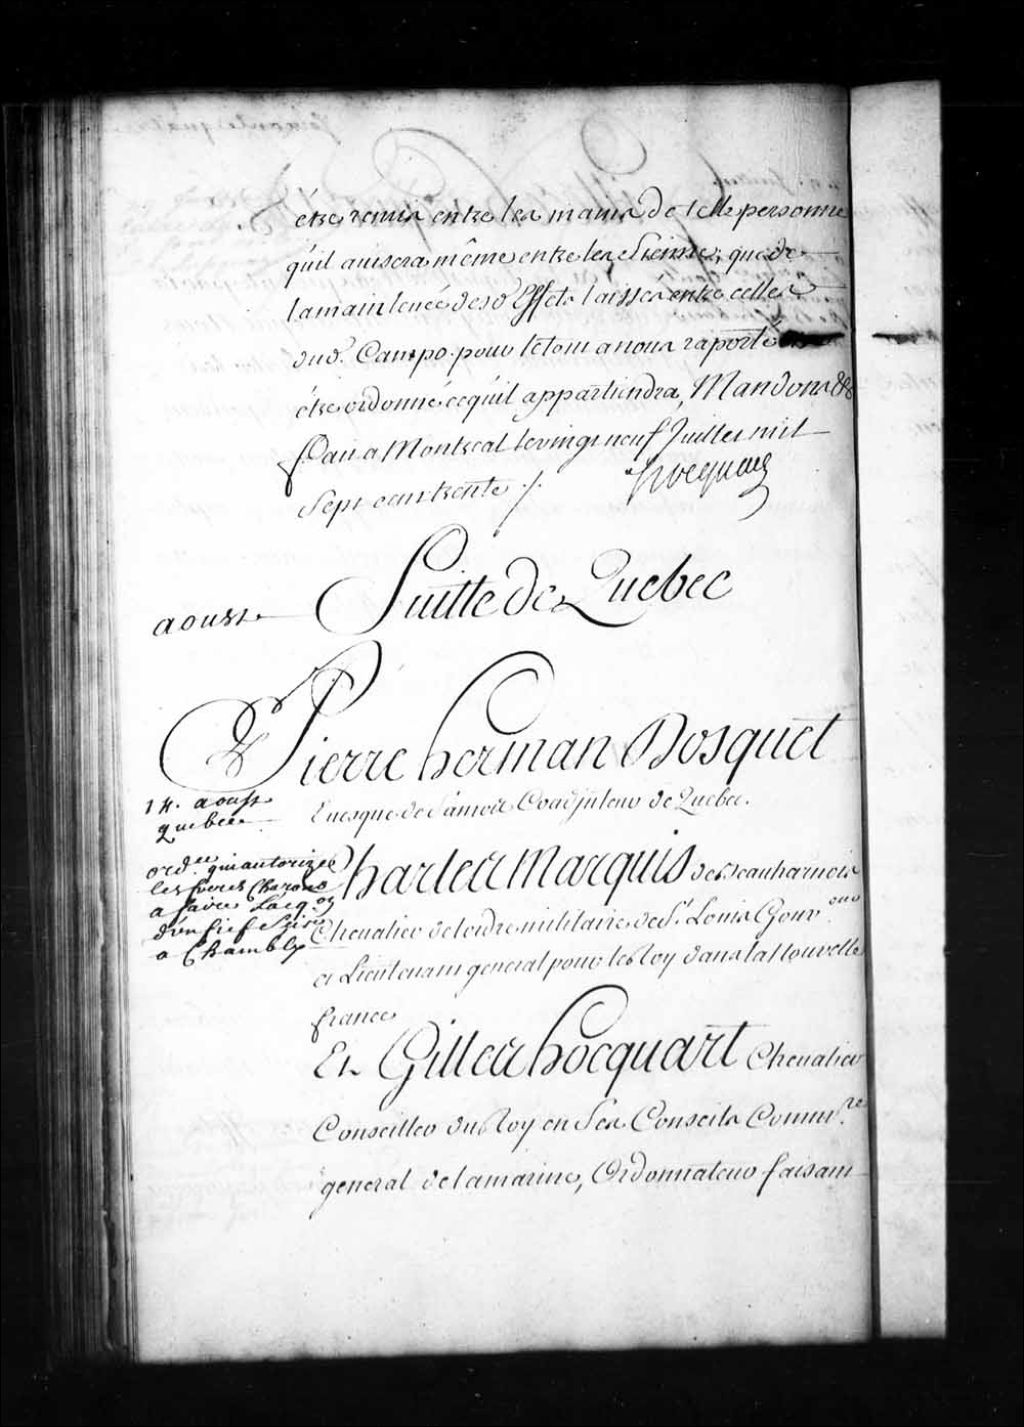 être remis entre les mains de telle personne
qu'il auisera même entre les Siennes, que de
la main leuée desd. Effets laissés entre celles
dud. Campo. pour le tout a nous raporté
être ordonné ce qu'il appartiendra, Mandons &c
fait a Montreal le vingt neuf Juillet mil
Sept cent trente ./. Hocquart
Suitte de Quebec
aoust
Pierre herman Dosquet
Euesque de Samos Coadjuteur de Quebec.
14. aoust
quebec
ord.ce qui autorize
les freres Charons
a faire l'acq.on
d'un fief Scis
a Chambly
Charles Marquis de Beauharnois
Cheualier de lordre militaire de St. Louis Gouv.eur
et Lieutenant general pour le Roy dans la Nouvelle
france
Et Gilles hocquart Cheualier
Conseiller du Roy en Ses Conseils Comm.re
general de la marine, Ordonnateur faisant